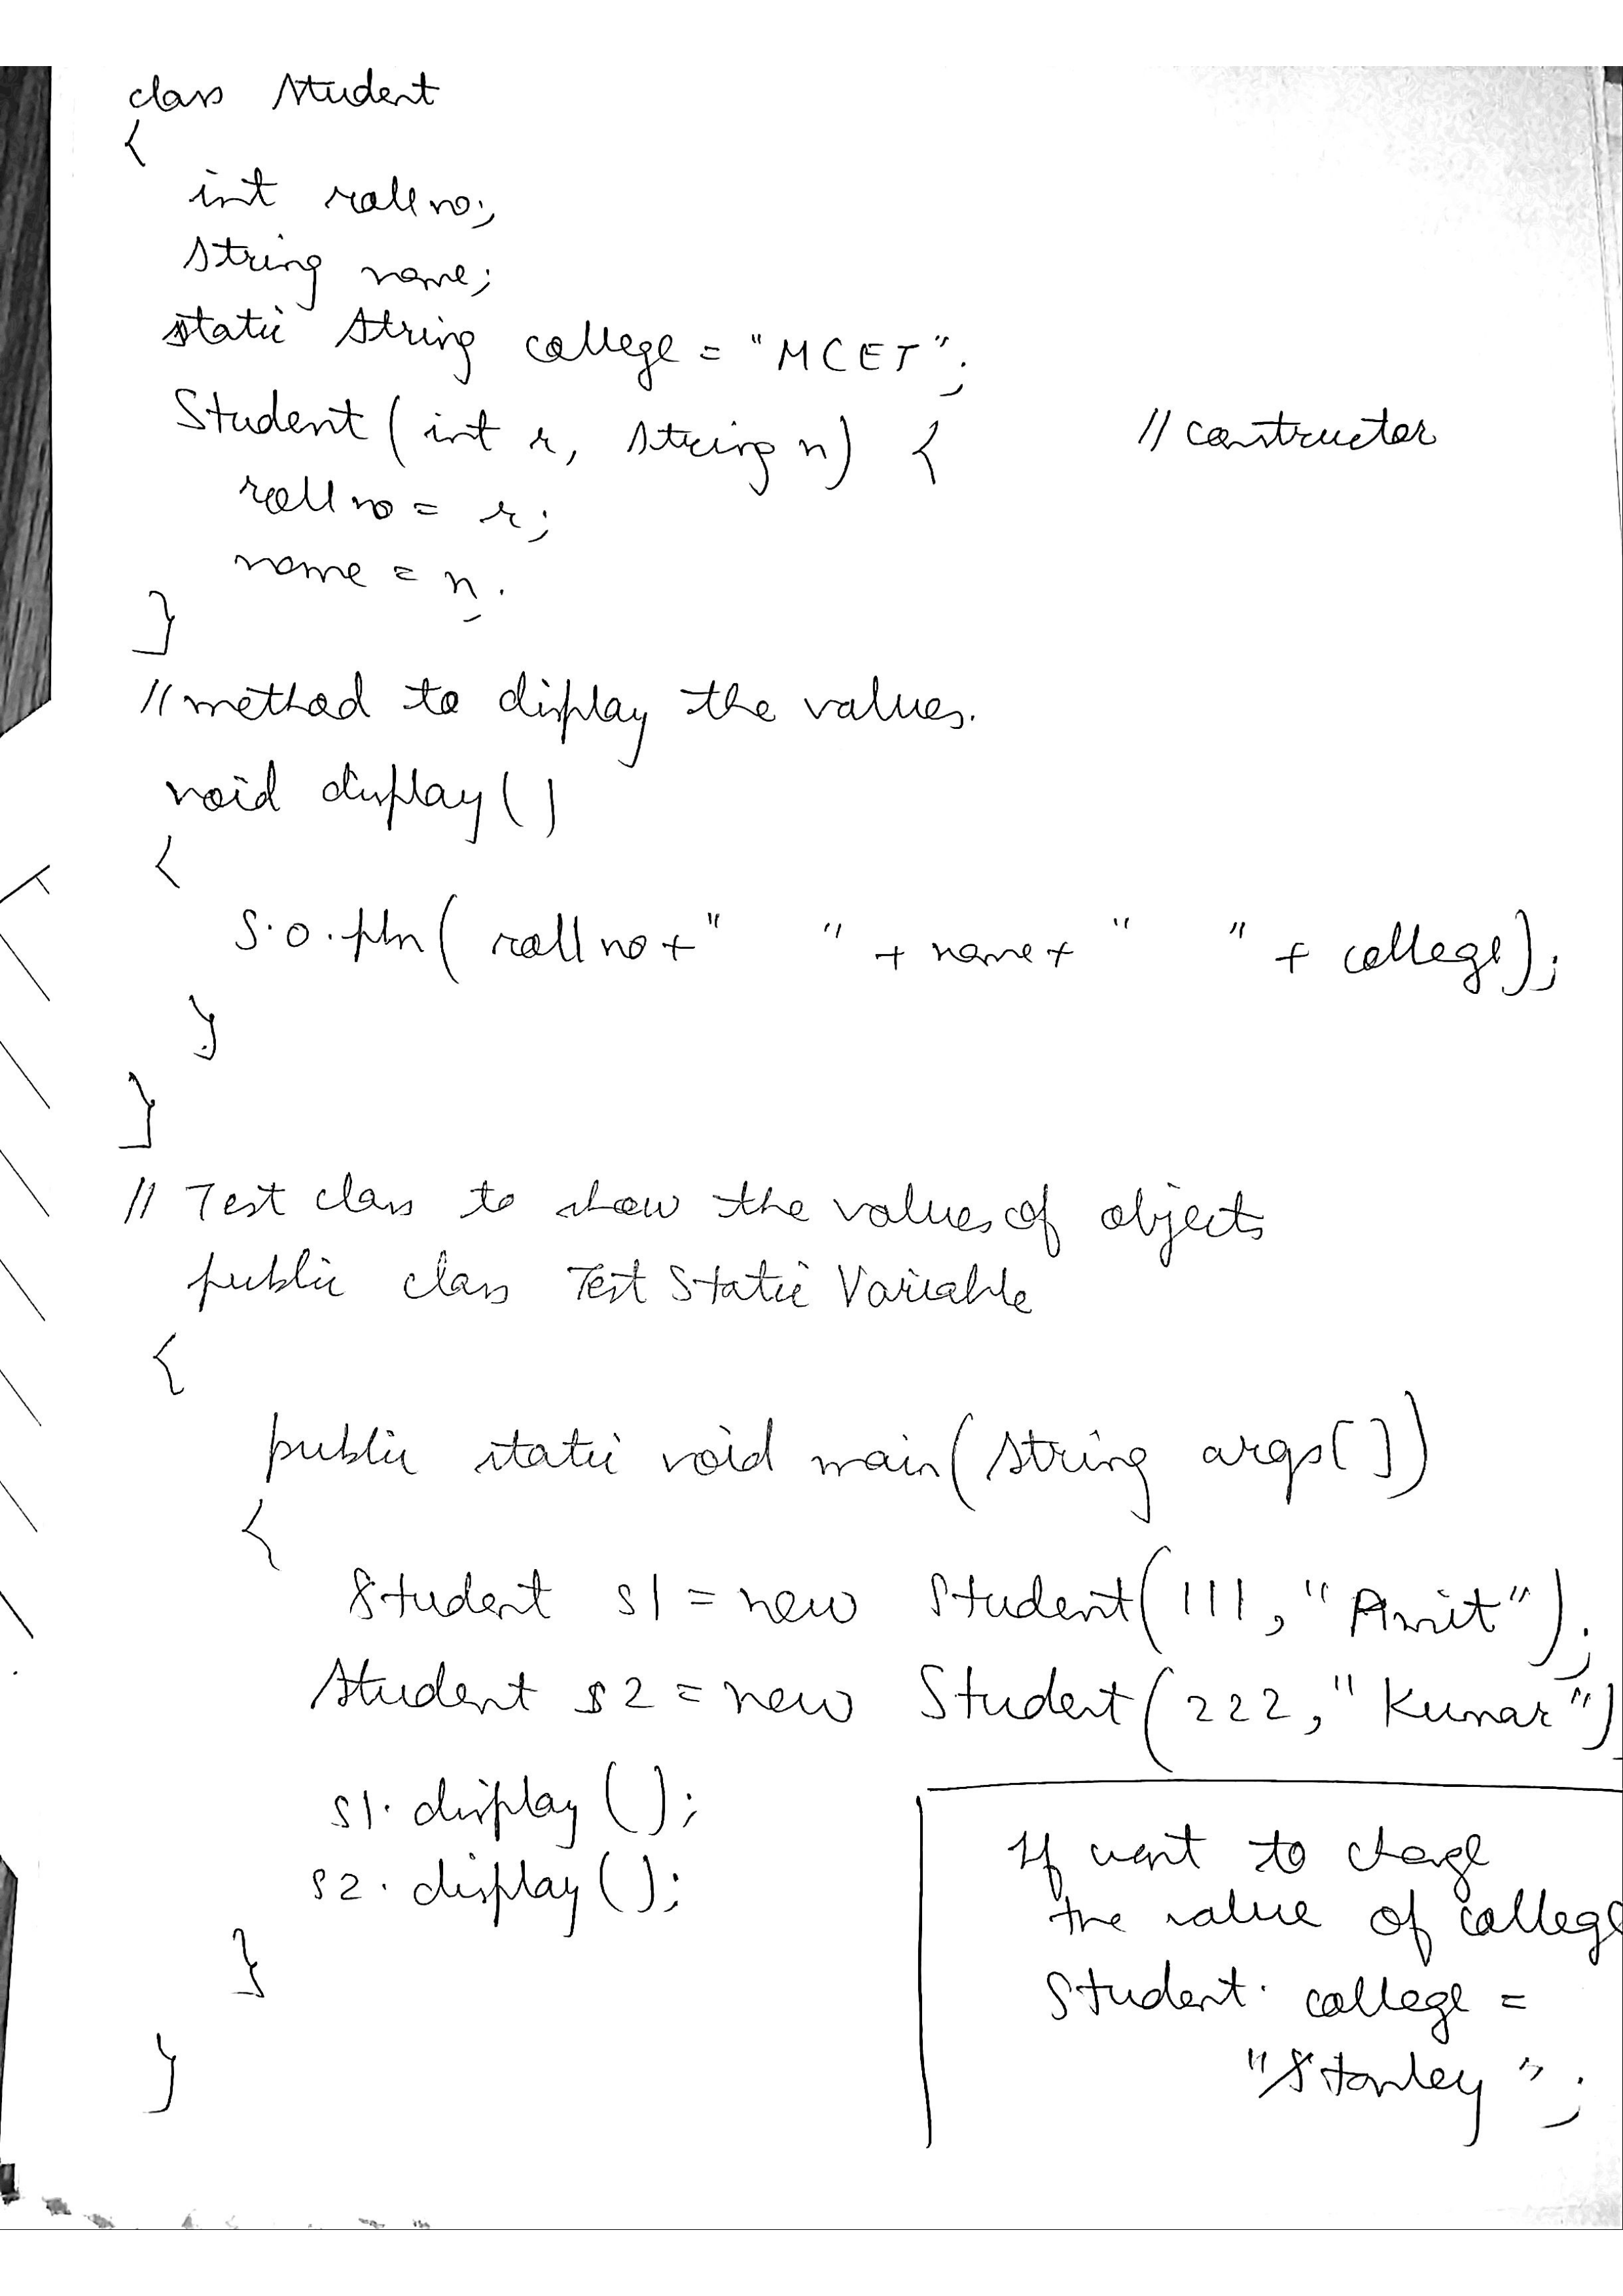 class Student
{
int rollno;
String name;
static String college = "MCET";
Student (int r, String n) { // constructor
rollno = r;
name = n;
}
// method to display the values.
void display ()
{
S.o.pln( rollno + " " + name + " " + college);
}
}
// Test class to show the values of objects
public class Test Static Variable
{
public static void main(String args[])
{
Student s1 = new Student(111, "Amit");
Student s2 = new Student(222, "Kumar")
s1.display ();
s2.display ();
}
}
If want to change
the value of college
Student. college =
"Stanley";